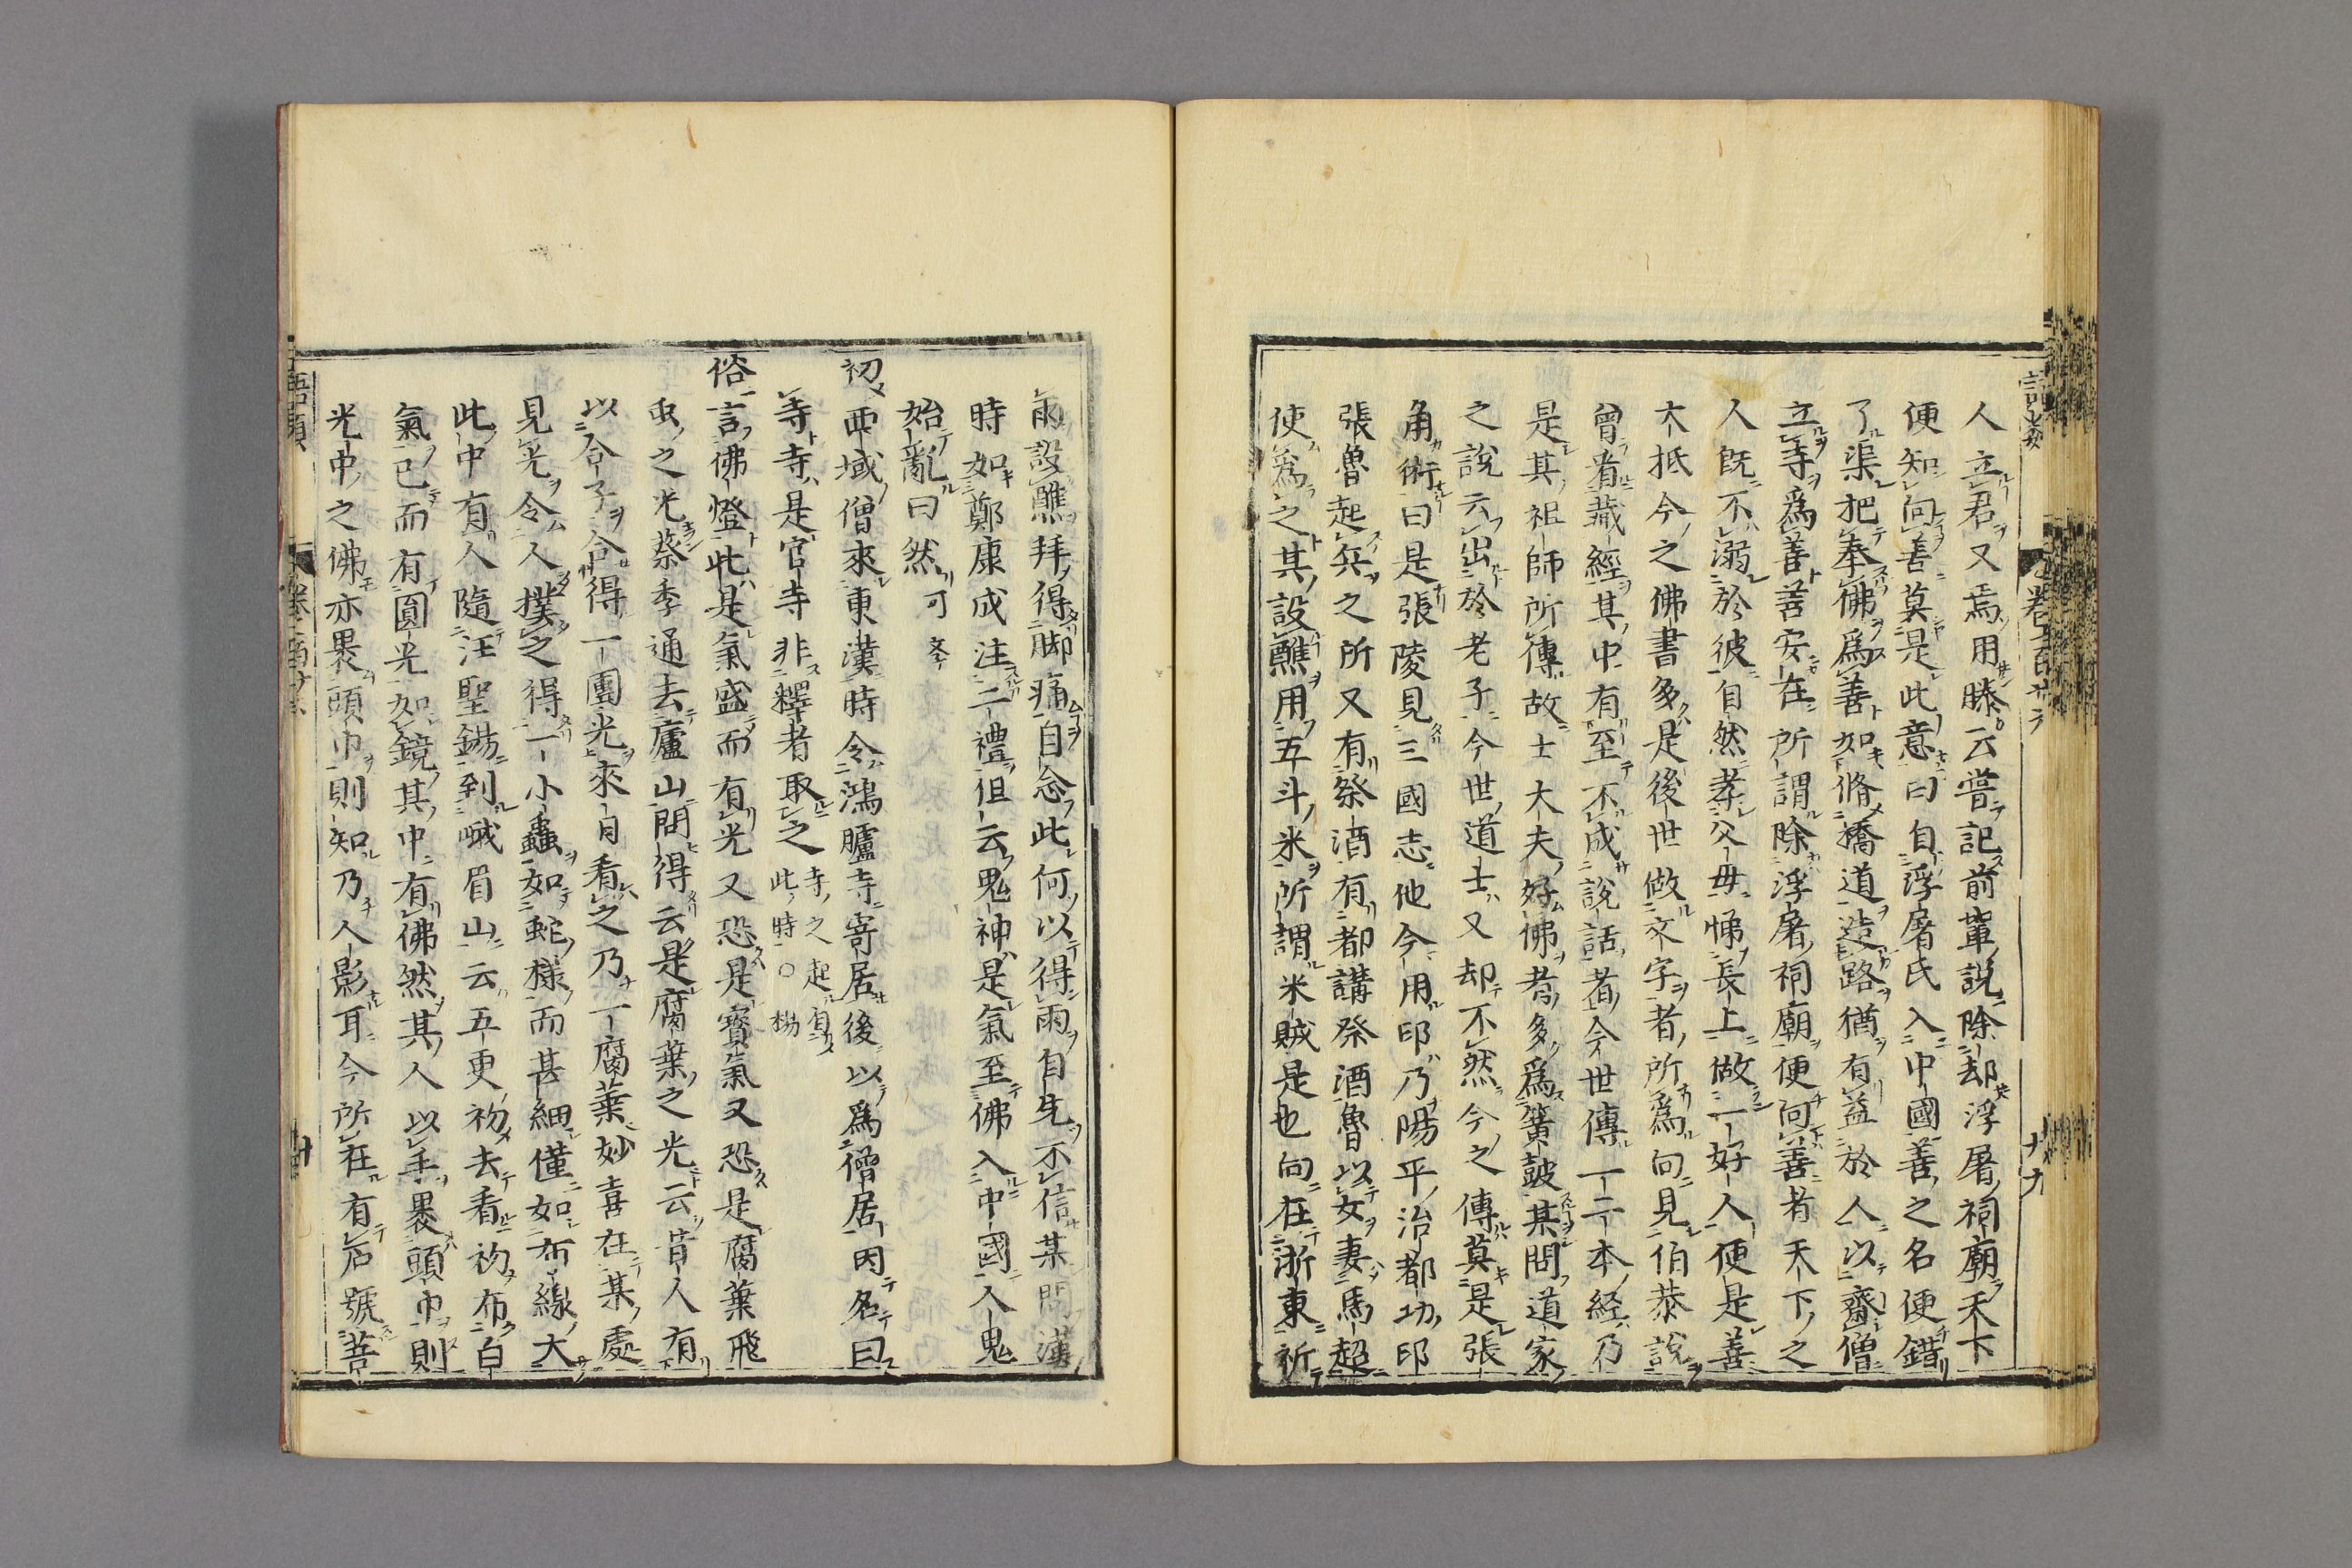 語類 卷百廿六 十九
人立君又焉用滕云嘗記前輩說除却浮屠祠廟天下
便知向善莫是此意曰自浮屠氏入中國善之名便錯
了渠把奉佛爲善如脩橋道造路猶有益於人以齋僧
立寺爲善善安在所謂除浮屠祠廟便向善者天下之
人既不溺於彼自然孝父母悌長上做一好人便是善
大抵今之佛書多是後世做文字者所爲向見伯恭說
曾看藏經其中有至不成說話者今世傳一二本經乃
是其祖師所傳故士大夫好佛者多爲簧鼓某問道家
之說云出於老子今世道士又却不然今之傳莫是張
角術曰是張陵見三國志他今用印乃陽平治都功印
張魯起兵之所又有祭酒有都講祭酒魯以女妻馬超
使爲之其設醮用五斗米所謂米賊是也向在浙東祈
雨設醮拜得脚痛自念此何以得雨自先不信某問漢
時如鄭康成注二禮但云鬼神是氣至佛入中國人鬼
始亂曰然可學
初西域僧來東漢時令鴻臚寺寄居後以爲僧居因名曰
寺寺是官寺非釋者取之
寺之起自
此時○揚
俗言佛燈此是氣盛而有光又恐是寶氣又恐是腐葉飛
虫之光蔡季通去廬山問得云是腐葉之光云昔人有
以合子合得一團光來日看之乃一腐葉妙喜在某處
見光令人撲之得一小蟲如蛇樣而甚細僅如布線大
此中有人隨汪聖錫到峨眉山云五更初去看初布白
氣已而有圓光如鏡其中有佛然其人以手裹頭巾則
光中之佛亦裹頭巾則知乃人影耳今所在有石號菩
語類 卷百廿六 廿